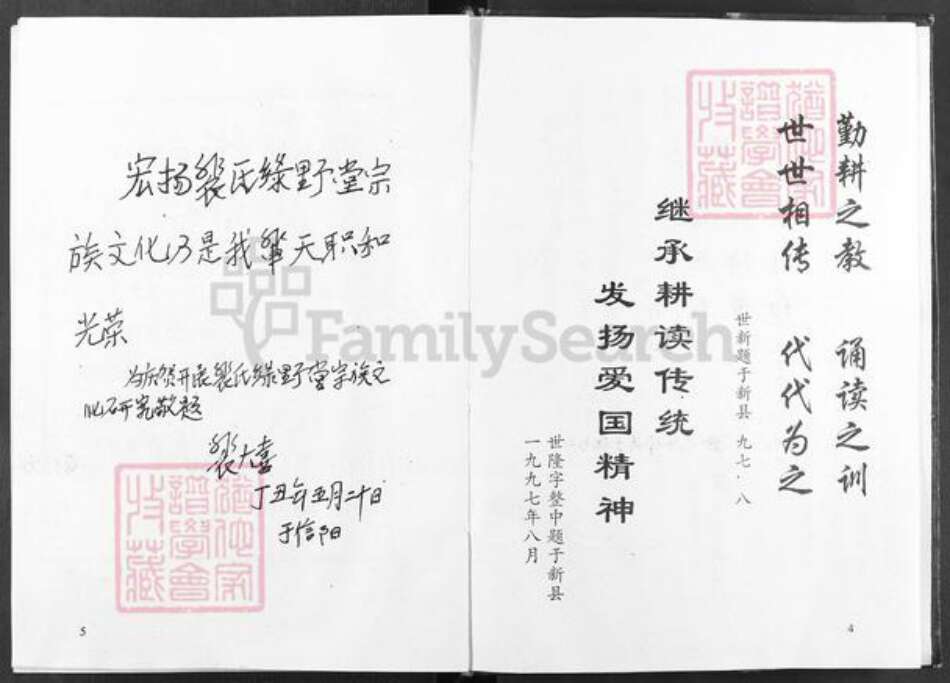 勤耕之教 诵读之训
世世相传 代代为之
世新题于新县 九七·八
继承耕读传统
发扬爱国精神
世隆字整中题于新县
一九九七年八月
4
宏扬裴氏绿野堂宗
族文化乃是我辈天职和
光荣
为庆贺开展裴氏绿野堂宗族文
化研究敬题
裴大喜
丁丑年五月二十日
于信阳
5
譜學會
收藏
譜學會
收藏
FamilySearch